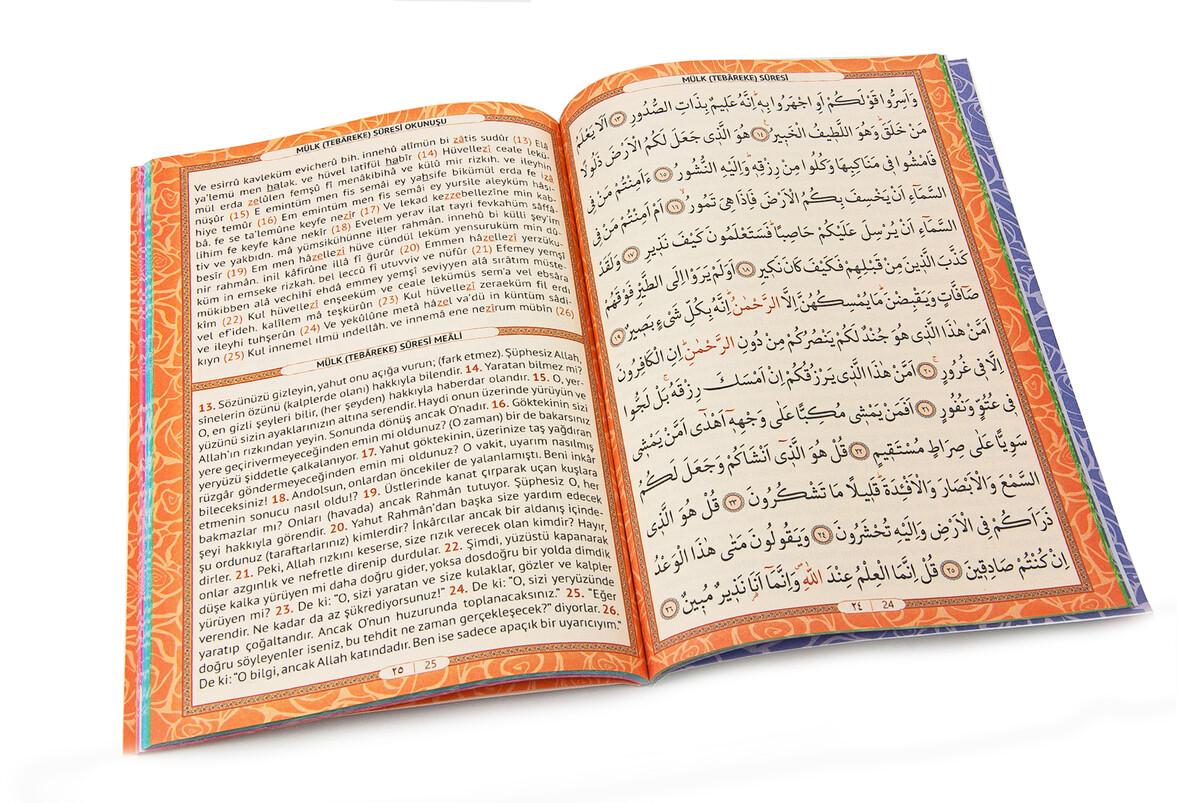 MÜLK (TEBÂREKE) SÛRESİ
وَاَسِرُّوا قَوْلَكُمْ اَوِ اجْهَرُوا بِهِۜ اِنَّهُ عَلِيمٌ بِذَاتِ الصُّدُورِ ﴿١٣﴾ اَلَا يَعْلَمُ
مَنْ خَلَقَۜ وَهُوَ اللَّطِيفُ الْخَبِيرُ ﴿١٤﴾ هُوَ الَّذِى جَعَلَ لَكُمُ الْاَرْضَ ذَلُولًا
فَامْشُوا فِى مَنَاكِبِهَا وَكُلُوا مِنْ رِزْقِهِۜ وَاِلَيْهِ النُّشُورُ ﴿١٥﴾ ءَاَمِنْتُمْ مَنْ فِى
السَّمَٓاءِ اَنْ يَخْسِفَ بِكُمُ الْاَرْضَ فَاِذَا هِىَ تَمُورُ ﴿١٦﴾ اَمْ اَمِنْتُمْ مَنْ فِى
السَّمَٓاءِ اَنْ يُرْسِلَ عَلَيْكُمْ حَاصِبًاۜ فَسَتَعْلَمُونَ كَيْفَ نَذِيرِ ﴿١٧﴾ وَلَقَدْ
كَذَّبَ الَّذِينَ مِنْ قَبْلِهِمْ فَكَيْفَ كَانَ نَكِيرِ ﴿١٨﴾ اَوَلَمْ يَرَوْا اِلَى الطَّيْرِ فَوْقَهُمْ
صَٓافَّاتٍ وَيَقْبِضْنَۜ مَا يُمْسِكُهُنَّ اِلَّا الرَّحْمٰنُۜ اِنَّهُ بِكُلِّ شَىْءٍ بَصِيرٌ ﴿١٩﴾
اَمَّنْ هٰذَا الَّذِى هُوَ جُنْدٌ لَكُمْ يَنْصُرُكُمْ مِنْ دُونِ الرَّحْمٰنِۜ اِنِ الْكَافِرُونَ
اِلَّا فِى غُرُورٍ ﴿٢٠﴾ اَمَّنْ هٰذَا الَّذِى يَرْزُقُكُمْ اِنْ اَمْسَكَ رِزْقَهُۚ بَلْ لَجُّوا
فِى عُتُوٍّ وَنُفُورٍ ﴿٢١﴾ اَفَمَنْ يَمْشِى مُكِبًّا عَلٰى وَجْهِهِٓ اَهْدٰٓى اَمَّنْ يَمْشِى
سَوِيًّا عَلٰى صِرَاطٍ مُسْتَقِيمٍ ﴿٢٢﴾ قُلْ هُوَ الَّذِٓى اَنْشَاَكُمْ وَجَعَلَ لَكُمُ
السَّمْعَ وَالْاَبْصَارَ وَالْاَفْـِٔدَةَۜ قَلِيلًا مَا تَشْكُرُونَ ﴿٢٣﴾ قُلْ هُوَ الَّذِى
ذَرَاَكُمْ فِى الْاَرْضِ وَاِلَيْهِ تُحْشَرُونَ ﴿٢٤﴾ وَيَقُولُونَ مَتٰى هٰذَا الْوَعْدُ
اِنْ كُنْتُمْ صَادِقِينَ ﴿٢٥﴾ قُلْ اِنَّمَا الْعِلْمُ عِنْدَ اللّٰهِۖ وَاِنَّمَٓا اَنَا۬ نَذِيرٌ مُبِينٌ ﴿٢٦﴾
٢٤ | 24
MÜLK (TEBÂREKE) SÛRESİ OKUNUŞU
Ve esirrû kavleküm evicherû bih. innehû alîmün bi zâtis sudûr (13) Elâ
ya'lemü men halak. ve hüvel latîfül habîr (14) Hüvellezî ceale lekü-
mül erda zelûlen femşû fî menâkibihâ ve külû mir rizkıh. ve ileyhin
nüşûr (15) E emintüm men fis semâi ey yahsife bikümül erda fe izâ
hiye temûr (16) Em emintüm men fis semâi ey yursile aleyküm hâsı-
bâ. fe se ta'lemûne keyfe nezîr (17) Ve lekad kezzebellezîne min kab-
lihim fe keyfe kâne nekîr (18) Evelem yerav ilat tayri fevkahüm sâffâ-
tiv ve yakbıdn. mâ yümsikühünne iller rahmân. innehû bi külli şey'im
besîr (19) Em men hâzellezî hüve cündül leküm yensuruküm min dû-
nir rahmân. inil kâfirûne illâ fî ğurûr (20) Emmen hâzellezî yerzükü-
küm in emseke rizkah. bel leccû fî utuvviv ve nüfûr (21) Efemey yemşî
mükibben alâ vechihî ehdâ emmey yemşî seviyyen alâ sırâtım müste-
kîm (22) Kul hüvellezî enşeeküm ve ceale lekümüs sem'a vel ebsâra
vel ef'ideh. kalîlem mâ teşkürûn (23) Kul hüvellezî zeraeküm fil erdı
ve ileyhi tuhşerûn (24) Ve yekûlûne metâ hâzel va'dü in küntüm sâdi-
kıyn (25) Kul innemel ılmü indellâh. ve innemâ ene nezîrum mübîn (26)
MÜLK (TEBÂREKE) SÛRESİ MEÂLİ
13. Sözünüzü gizleyin, yahut onu açığa vurun; (fark etmez). Şüphesiz Allah,
sinelerin özünü (kalplerde olanı) hakkıyla bilendir. 14. Yaratan bilmez mi?
O, en gizli şeyleri bilir, (her şeyden) hakkıyla haberdar olandır. 15. O, yer-
yüzünü sizin ayaklarınızın altına serendir. Haydi onun üzerinde yürüyün ve
Allah'ın rızkından yeyin. Sonunda dönüş ancak O'nadır. 16. Göktekinin sizi
yere geçirivermeyeceğinden emin mi oldunuz? (O zaman) bir de bakarsınız
yeryüzü şiddetle çalkalanıyor. 17. Yahut göktekinin, üzerinize taş yağdıran
rüzgâr göndermeyeceğinden emin mi oldunuz? O vakit, uyarım nasılmış
bileceksiniz! 18. Andolsun, onlardan öncekiler de yalanlamıştı. Beni inkâr
etmenin sonucu nasıl oldu!? 19. Üstlerinde kanat çırparak uçan kuşlara
bakmazlar mı? Onları (havada) ancak Rahmân tutuyor. Şüphesiz O, her
şeyi hakkıyla görendir. 20. Yahut Rahmân'dan başka size yardım edecek
şu ordunuz (taraftarlarınız) kimlerdir? İnkârcılar ancak bir aldanış içinde-
dirler. 21. Peki, Allah rızkını keserse, size rızık verecek olan kimdir? Hayır,
onlar azgınlık ve nefretle direnip durdular. 22. Şimdi, yüzüstü kapanarak
düşe kalka yürüyen mi daha doğru gider, yoksa dosdoğru bir yolda dimdik
yürüyen mi? 23. De ki: "O, sizi yaratan ve size kulaklar, gözler ve kalpler
verendir. Ne kadar da az şükrediyorsunuz!" 24. De ki: "O, sizi yeryüzünde
yaratıp çoğaltandır. Ancak O'nun huzurunda toplanacaksınız." 25. "Eğer
doğru söyleyenler iseniz, bu tehdit ne zaman gerçekleşecek?" diyorlar. 26.
De ki: "O bilgi, ancak Allah katındadır. Ben ise sadece apaçık bir uyarıcıyım."
٢٥ | 25